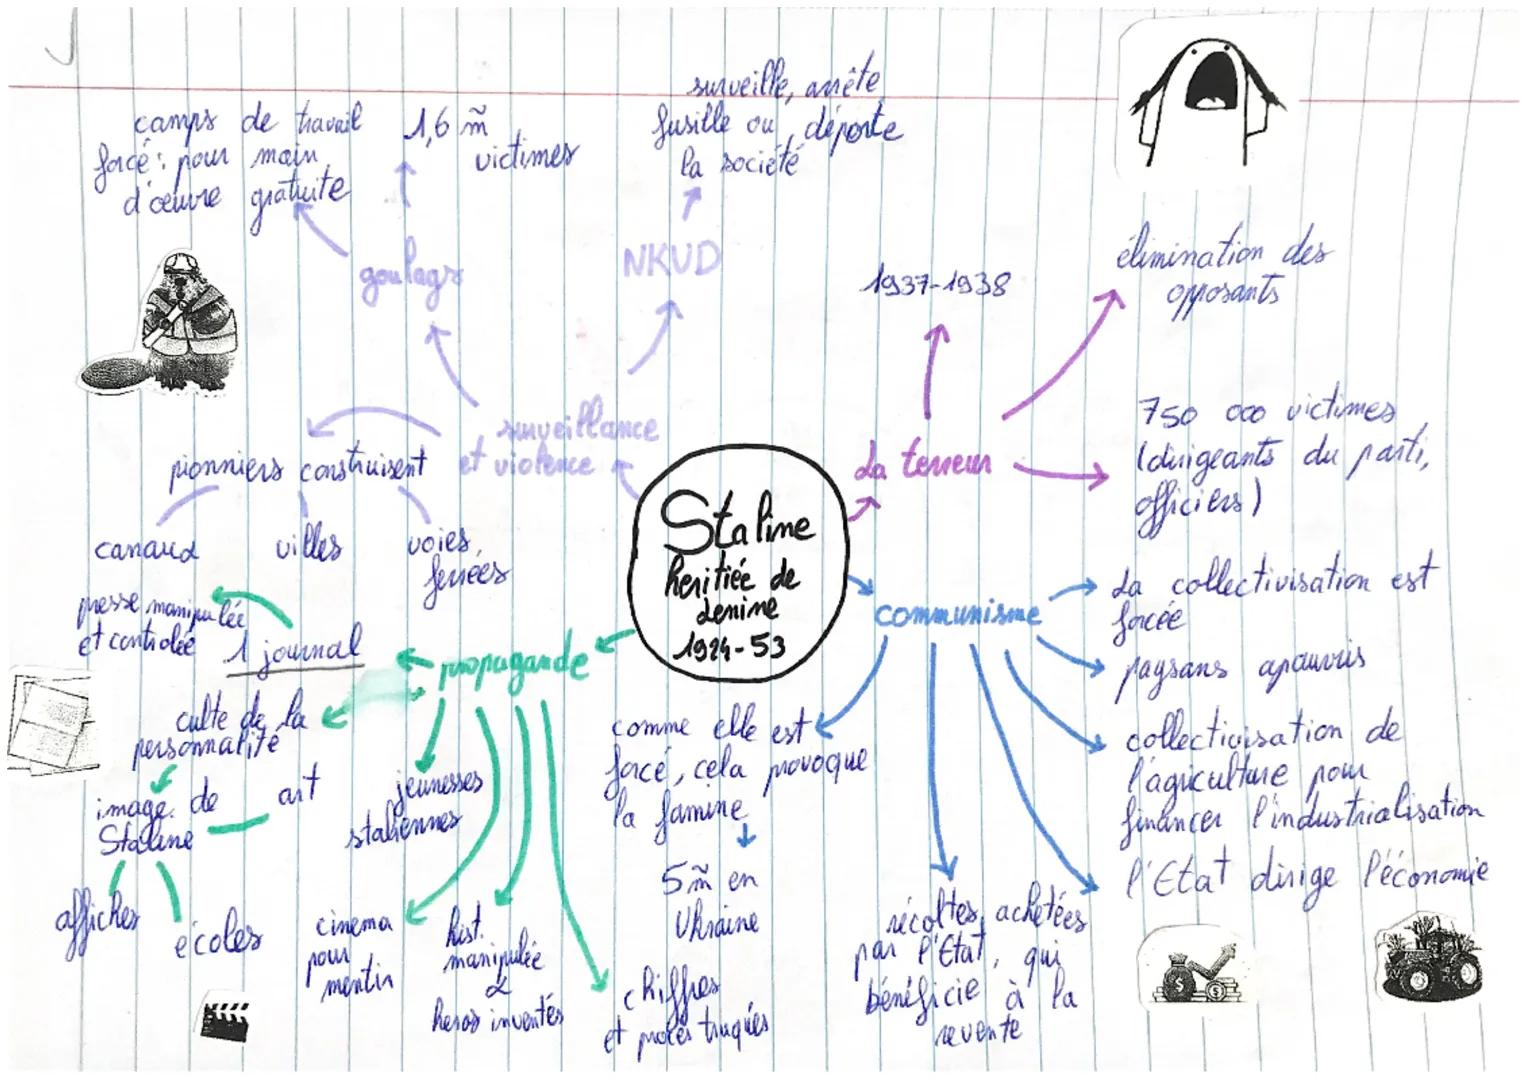 camps de travail
forcé : pour main
d'œuvre gratuite
1,6 m̃
victimes
surveille, arrête,
fusille ou déporte
la société
goulags
NKUD
1937-1938
élimination des
opposants
surveillance
et violence
pionniers construisent
canaud
villes
voies
ferrées
La terreur
750 000 victimes
(dirigeants du parti,
officiers)
Staline
heritiée de
Lenine
1924-53
communisme
La collectivisation est
forcée
paysans apauvris
collectivisation de
l'agriculture pour
financer l'industrialisation
l'Etat dirige l'économie
récoltes achetées
par l'Etat, qui
bénéficie à la
revente
comme elle est
forcé, cela provoque
la famine
5 m̃ en
Ukraine
propagande
1 journal
presse manipulée
et controlée
culte de la
personnalité
image de
Staline
art
affiches
écoles
jeunesses
staliennes
cinema
pour
mentir
hist.
manipulée
&
heros inventés
chiffres
et procès truqués